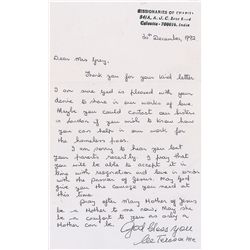 MISSIONARIES OF CHARITY
54A, A. J. C. Bose Road
Calcutta - 700016, India
20th December, 1992
Dear Mrs Grey,
Thank you for your kind letter
I am sure God is pleased with your
desire to share in our works of love.
Maybe you could contact our Sisters
in London if you wish to know how
you can help in our work for
the homeless poor.
I am sorry to hear you lost
your parents recently. I pray that
you will be able to accept it in
time with resignation and love in union with
the passion of Jesus. May God
give you the courage you need at
this time.
Pray often Mary Mother of Jesus
be a Mother to me now, May Mary
be a comfort to you as only a
Mother can be.
God bless you
lee Teresa mc